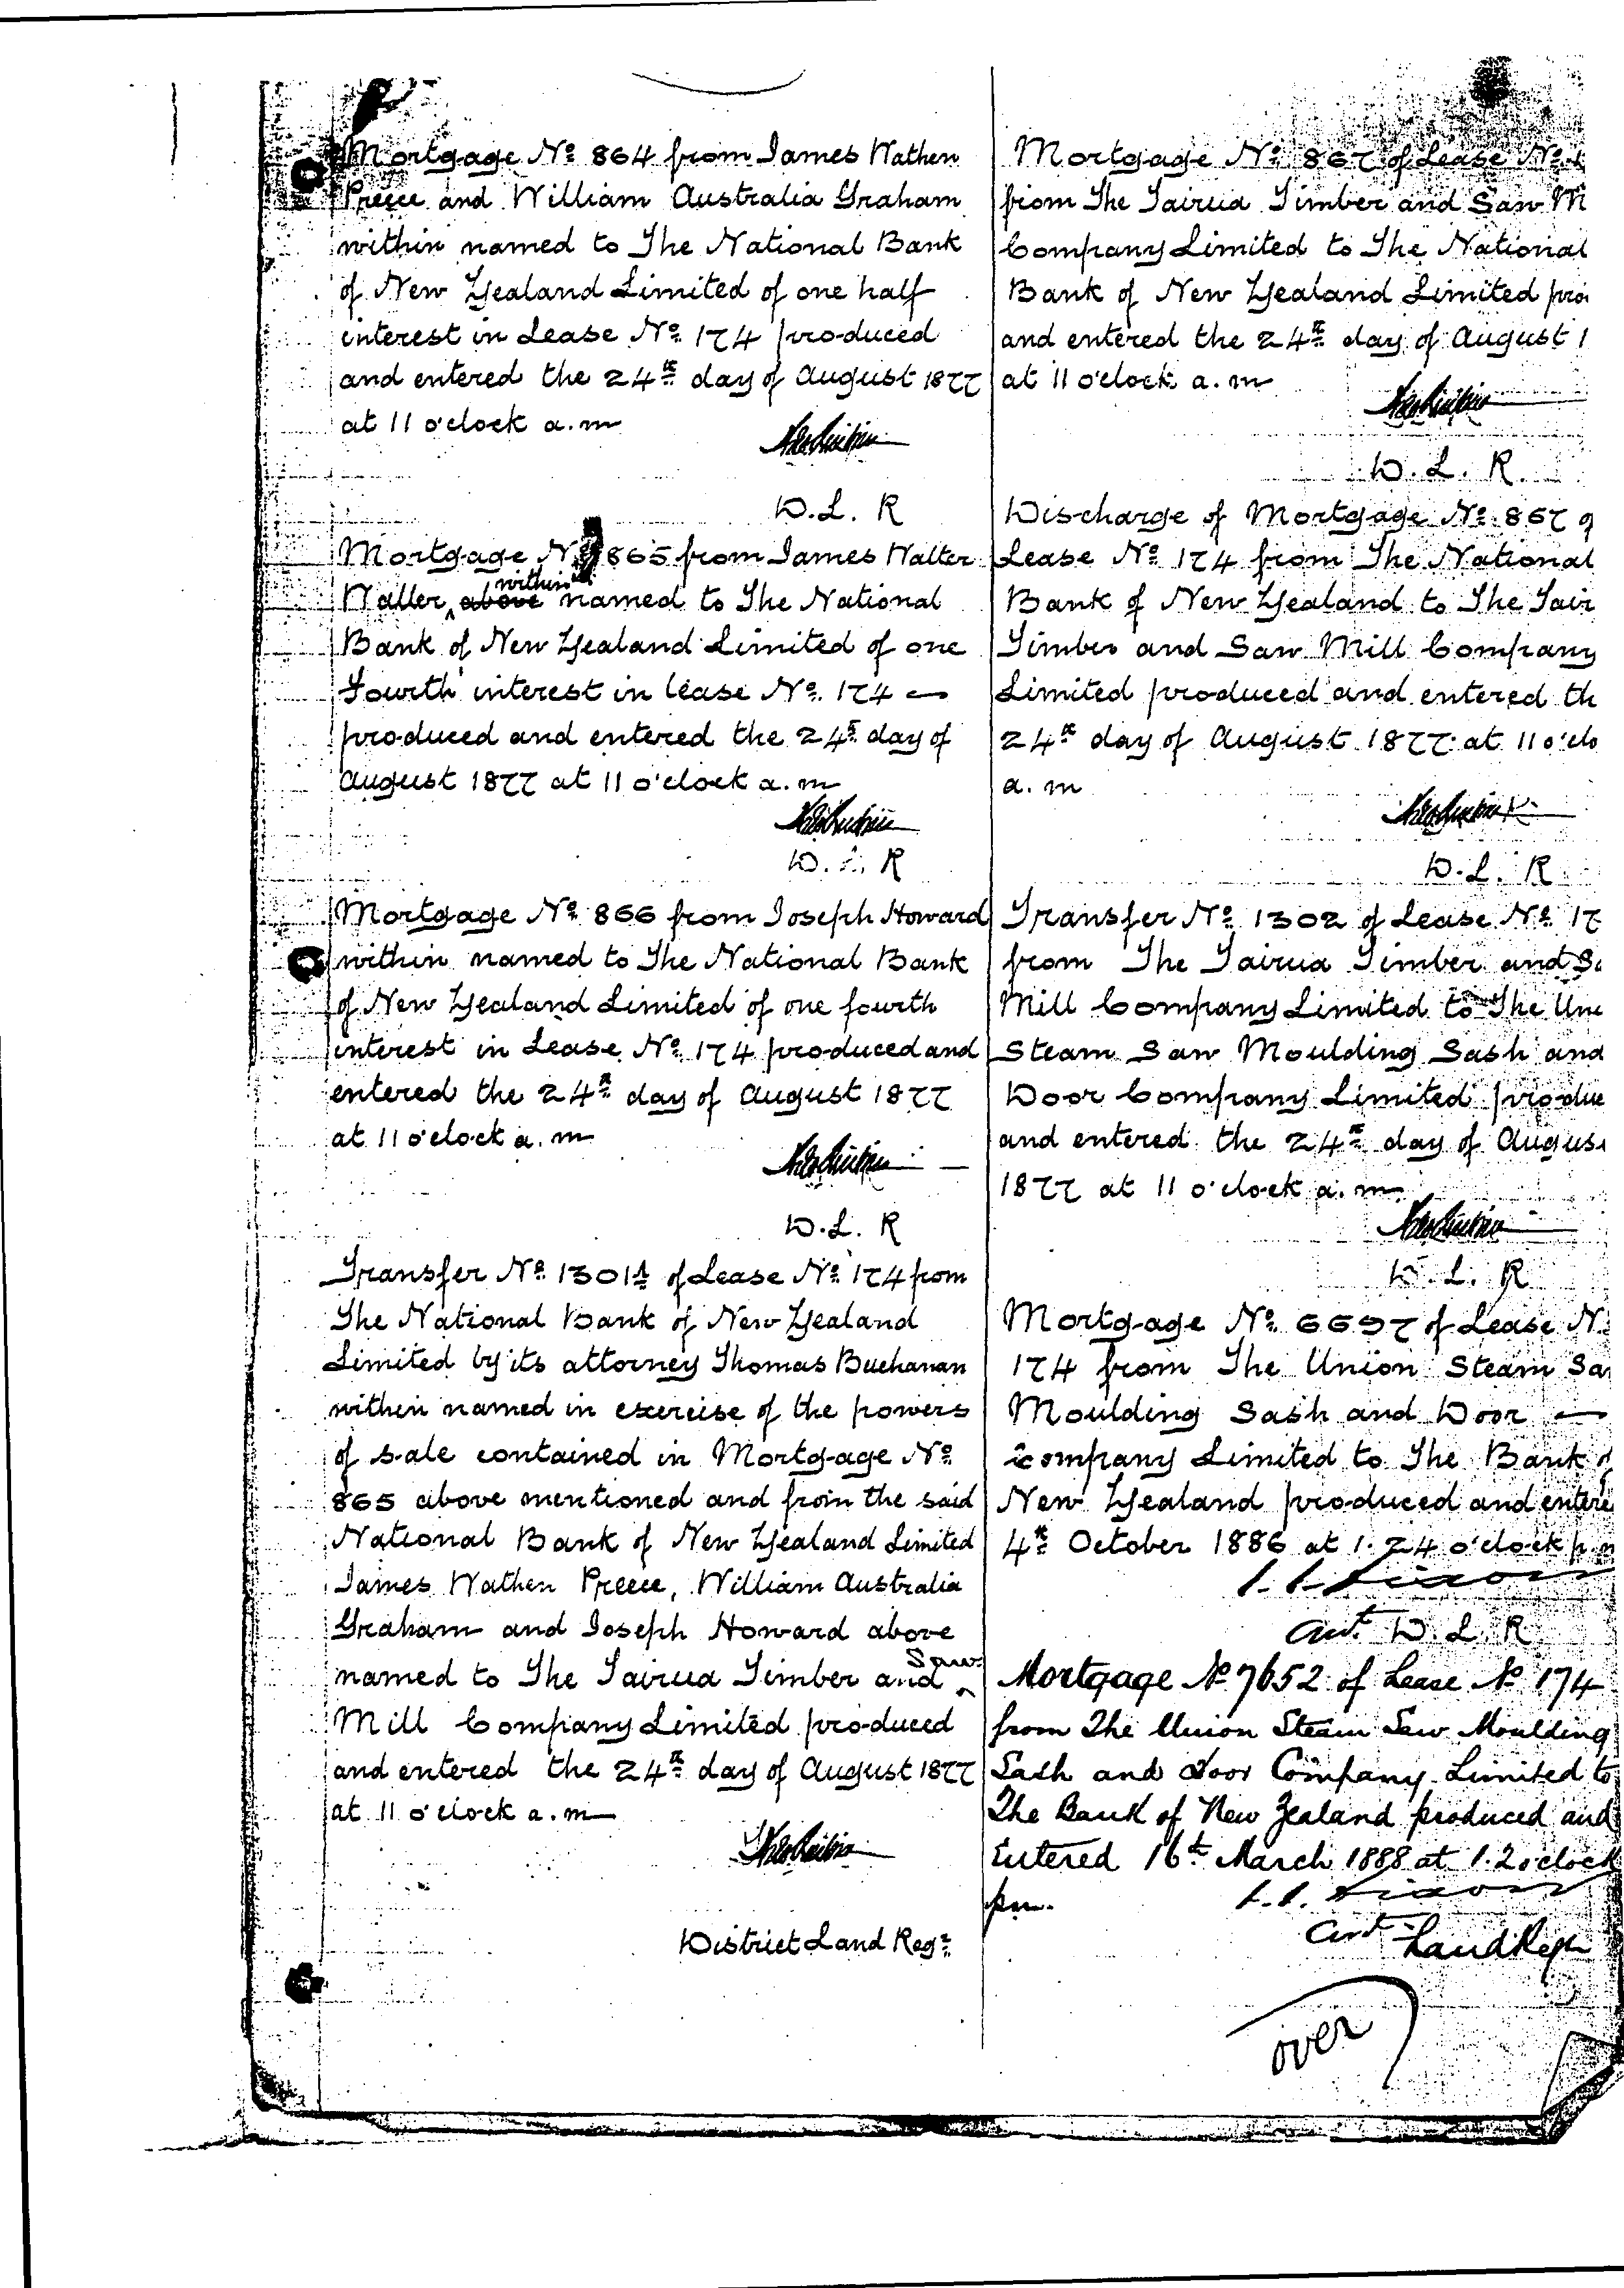 Mortgage No. 864 from James Wathen
Preece and William Australia Graham
within named to The National Bank
of New Zealand Limited of one half
interest in Lease No. 174 produced
and entered the 24th day of August 1877
at 11 o'clock a.m
D.L. R
Mortgage No. 865 from James Walter
Waller above within named to The National
Bank of New Zealand Limited of one
Fourth interest in lease No. 174 —
produced and entered the 24th day of
August 1877 at 11 o'clock a.m
D. L. R
Mortgage No. 866 from Joseph Howard
within named to The National Bank
of New Zealand Limited of one fourth
interest in Lease No. 174 produced and
entered the 24th day of August 1877
at 11 o'clock a.m
D.L. R
Transfer No. 1301A of Lease No. 174 from
The National Bank of New Zealand
Limited by its attorney Thomas Buchanan
within named in exercise of the powers
of sale contained in Mortgage No.
865 above mentioned and from the said
National Bank of New Zealand Limited
James Wathen Preece, William Australia
Graham and Joseph Howard above
named to The Tairua Timber and Saw
Mill Company Limited produced
and entered the 24th day of August 1877
at 11 o'clock a.m
District Land Regr.
Mortgage No. 867 of Lease No.
from The Tairua Timber and Saw M
Company Limited to The National
Bank of New Zealand Limited pro
and entered the 24th day of August 1
at 11 o'clock a.m
D. L. R
Discharge of Mortgage No. 867 of
Lease No. 174 from The National
Bank of New Zealand to The Tair
Timber and Saw Mill Company
Limited produced and entered th
24th day of August 1877 at 11 o'clo
a. m
D.L. R
Transfer No. 1302 of Lease No. 17
from The Tairua Timber and Sa
Mill Company Limited to The Uni
Steam Saw Moulding Sash and
Door Company Limited produc
and entered the 24th day of Augus
1877 at 11 o'clock a.m
D. L. R
Mortgage No. 6697 of Lease N.
174 from The Union Steam Sa
Moulding Sash and Door —
Company Limited to The Bank of
New Zealand produced and entere
4th October 1886 at 1.24 o'clock p.m
Asst. D. L. R
Mortgage No 7652 of Lease No 174
from The Union Steam Saw Moulding
Sash and Door Company Limited to
The Bank of New Zealand produced and
Entered 16th March 1888 at 1.2 oclock
pm.
Asst Land Regr
over